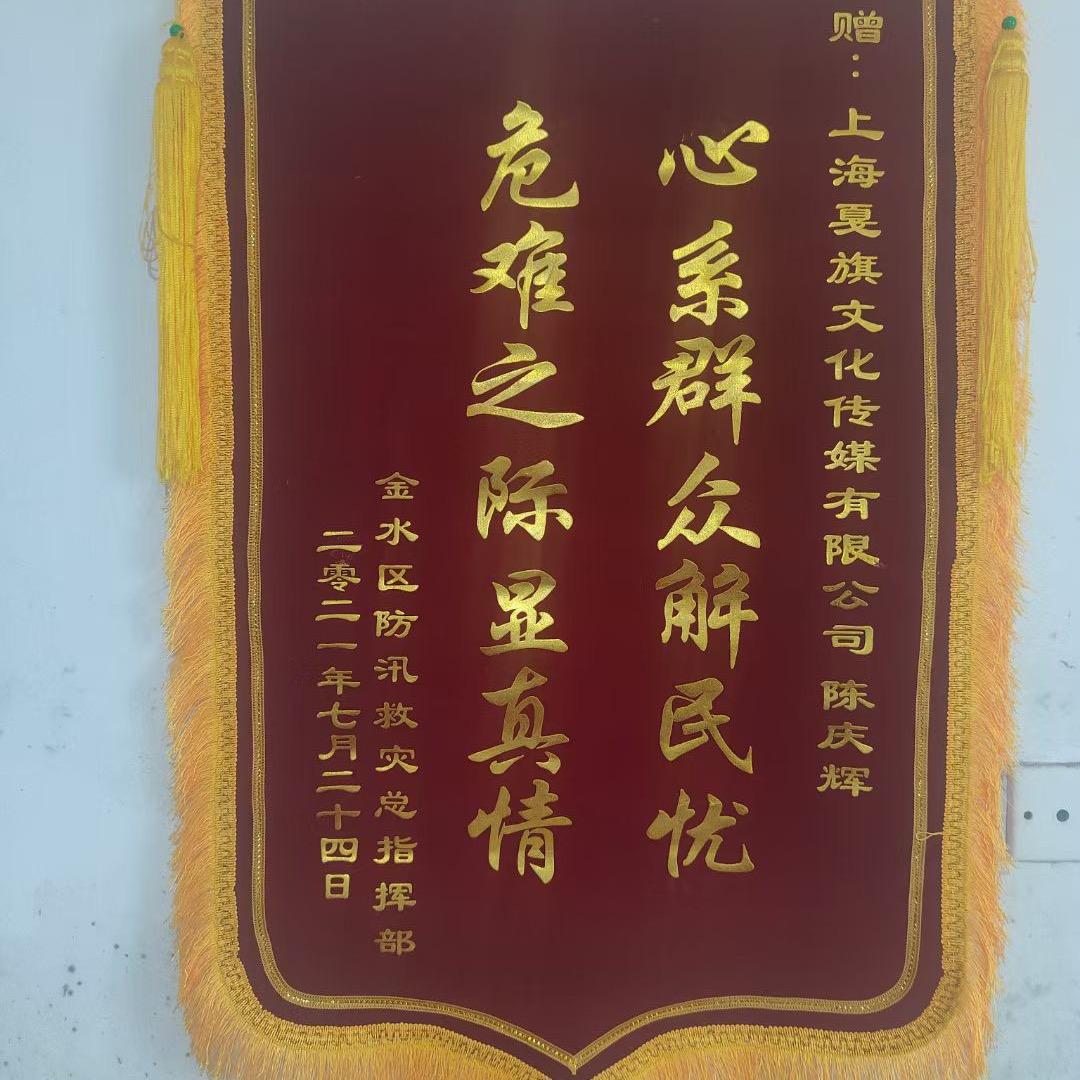 赠：上海夏旗文化传媒有限公司 陈庆辉
心系群众解民忧
危难之际显真情
金水区防汛救灾总指挥部
二零二一年七月二十四日